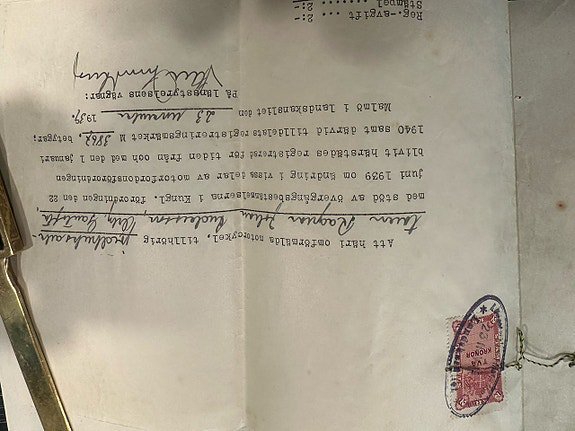 Att häri omförmälda motorcykel, tillhörig
Ragnar Johan
med stöd av övergångsbestämmelserna i Kungl. förordningen den 22
juni 1939 om ändring i vissa delar av motorfordonsförordningen
blivit härstädes registrerat för tiden från och med den 1 januari
1940 samt därvid tilldelats registreringsmärket M 3862, betygar;
Malmö i landskansliet den 23 november 1939.
På länsstyrelsens vägnar:
Reg.-avgift ... 2:-
Stämpel .... 2:-
TVÅ
KRONOR